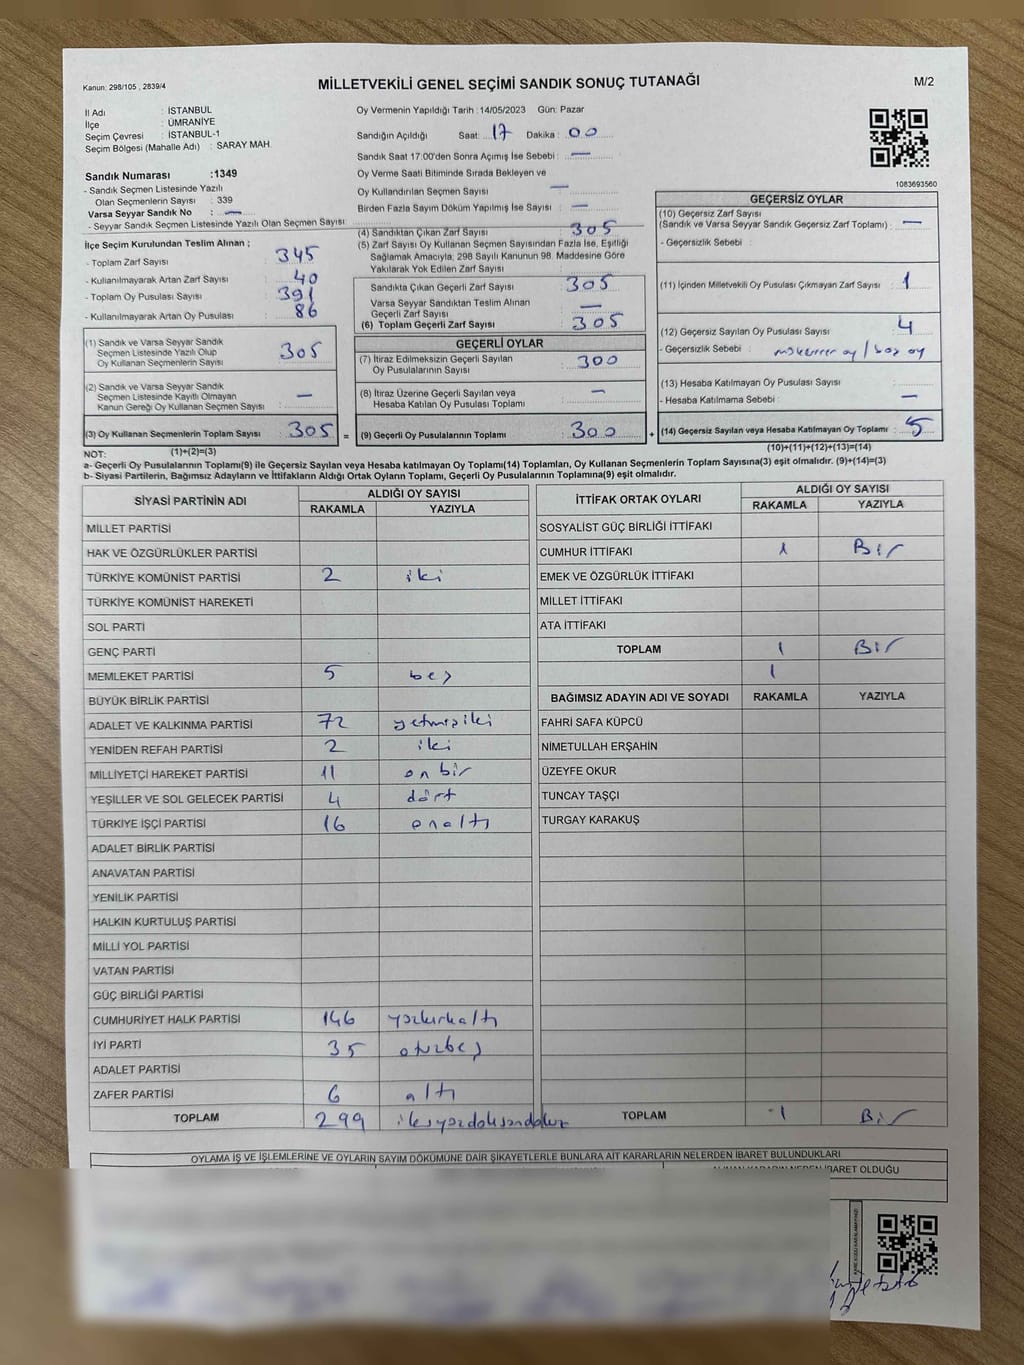 Kanun: 298/105 , 2839/4
MİLLETVEKİLİ GENEL SEÇİMİ SANDIK SONUÇ TUTANAĞI
M/2
İl Adı : İSTANBUL
İlçe : ÜMRANİYE
Seçim Çevresi : İSTANBUL-1
Seçim Bölgesi (Mahalle Adı) : SARAY MAH.
Sandık Numarası :1349
- Sandık Seçmen Listesinde Yazılı
Olan Seçmenlerin Sayısı : 339
Varsa Seyyar Sandık No : —
- Seyyar Sandık Seçmen Listesinde Yazılı Olan Seçmen Sayısı
İlçe Seçim Kurulundan Teslim Alınan ;
- Toplam Zarf Sayısı : 345
- Kullanılmayarak Artan Zarf Sayısı : 40
- Toplam Oy Pusulası Sayısı : 391
- Kullanılmayarak Artan Oy Pusulası : 86
(1) Sandık ve Varsa Seyyar Sandık
Seçmen Listesinde Yazılı Olup
Oy Kullanan Seçmenlerin Sayısı : 305
(2) Sandık ve Varsa Seyyar Sandık
Seçmen Listesinde Kayıtlı Olmayan
Kanun Gereği Oy Kullanan Seçmen Sayısı : —
(3) Oy Kullanan Seçmenlerin Toplam Sayısı : 305 =
(1)+(2)=(3)
Oy Vermenin Yapıldığı Tarih : 14/05/2023 Gün: Pazar
Sandığın Açıldığı Saat: 17 Dakika : 00
Sandık Saat 17:00'den Sonra Açılmış İse Sebebi : —
Oy Verme Saati Bitiminde Sırada Bekleyen ve
Oy Kullandırılan Seçmen Sayısı —
Birden Fazla Sayım Döküm Yapılmış İse Sayısı : —
(4) Sandıktan Çıkan Zarf Sayısı : 305
(5) Zarf Sayısı Oy Kullanan Seçmen Sayısından Fazla İse, Eşitliği
Sağlamak Amacıyla, 298 Sayılı Kanunun 98. Maddesine Göre
Yakılarak Yok Edilen Zarf Sayısı :
Sandıkta Çıkan Geçerli Zarf Sayısı : 305
Varsa Seyyar Sandıktan Teslim Alınan
Geçerli Zarf Sayısı : —
(6) Toplam Geçerli Zarf Sayısı : 305
GEÇERLİ OYLAR
(7) İtiraz Edilmeksizin Geçerli Sayılan
Oy Pusulalarının Sayısı : 300
(8) İtiraz Üzerine Geçerli Sayılan veya
Hesaba Katılan Oy Pusulası Toplamı : —
(9) Geçerli Oy Pusulalarının Toplamı : 300 +
1083693560
GEÇERSİZ OYLAR
(10) Geçersiz Zarf Sayısı
(Sandık ve Varsa Seyyar Sandık Geçersiz Zarf Toplamı) : —
- Geçersizlik Sebebi :
(11) İçinden Milletvekili Oy Pusulası Çıkmayan Zarf Sayısı : 1
(12) Geçersiz Sayılan Oy Pusulası Sayısı : 4
- Geçersizlik Sebebi : mükerrer oy / boş oy
(13) Hesaba Katılmayan Oy Pusulası Sayısı :
- Hesaba Katılmama Sebebi : —
(14) Geçersiz Sayılan veya Hesaba Katılmayan Oy Toplamı : 5
(10)+(11)+(12)+(13)=(14)
NOT:
a- Geçerli Oy Pusulalarının Toplamı(9) ile Geçersiz Sayılan veya Hesaba katılmayan Oy Toplamı(14) Toplamları, Oy Kullanan Seçmenlerin Toplam Sayısına(3) eşit olmalıdır. (9)+(14)=(3)
b- Siyasi Partilerin, Bağımsız Adayların ve İttifakların Aldığı Ortak Oyların Toplamı, Geçerli Oy Pusulalarının Toplamına(9) eşit olmalıdır.
SİYASİ PARTİNİN ADI ALDIĞI OY SAYISI
RAKAMLA YAZIYLA
MİLLET PARTİSİ
HAK VE ÖZGÜRLÜKLER PARTİSİ
TÜRKİYE KOMÜNİST PARTİSİ 2 iki
TÜRKİYE KOMÜNİST HAREKETİ
SOL PARTİ
GENÇ PARTİ
MEMLEKET PARTİSİ 5 beş
BÜYÜK BİRLİK PARTİSİ
ADALET VE KALKINMA PARTİSİ 72 yetmişiki
YENİDEN REFAH PARTİSİ 2 iki
MİLLİYETÇİ HAREKET PARTİSİ 11 onbir
YEŞİLLER VE SOL GELECEK PARTİSİ 4 dört
TÜRKİYE İŞÇİ PARTİSİ 16 onaltı
ADALET BİRLİK PARTİSİ
ANAVATAN PARTİSİ
YENİLİK PARTİSİ
HALKIN KURTULUŞ PARTİSİ
MİLLİ YOL PARTİSİ
VATAN PARTİSİ
GÜÇ BİRLİĞİ PARTİSİ
CUMHURİYET HALK PARTİSİ 146 yüzkırkaltı
İYİ PARTİ 35 otuzbeş
ADALET PARTİSİ
ZAFER PARTİSİ 6 altı
TOPLAM 299 ikiyüzdoksandokuz
İTTİFAK ORTAK OYLARI ALDIĞI OY SAYISI
RAKAMLA YAZIYLA
SOSYALİST GÜÇ BİRLİĞİ İTTİFAKI
CUMHUR İTTİFAKI 1 Bir
EMEK VE ÖZGÜRLÜK İTTİFAKI
MİLLET İTTİFAKI
ATA İTTİFAKI
TOPLAM 1 Bir
1
BAĞIMSIZ ADAYIN ADI VE SOYADI RAKAMLA YAZIYLA
FAHRİ SAFA KÜPCÜ
NİMETULLAH ERŞAHİN
ÜZEYFE OKUR
TUNCAY TAŞÇI
TURGAY KARAKUŞ
TOPLAM 1 Bir
OYLAMA İŞ VE İŞLEMLERİNE VE OYLARIN SAYIM DÖKÜMÜNE DAİR ŞİKAYETLERLE BUNLARA AİT KARARLARIN NELERDEN İBARET BULUNDUKLARI
İBARET OLDUĞU